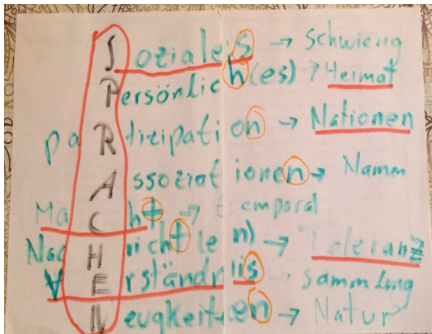 Soziales → Schwierig
Persönlich(es) → Heimat
partizipation → Nationen
Assoziationen → Namen
Macht → temporal
Nachricht(en) → Toleranz
VErständnis → sammlung
Neugkeiten → Natur